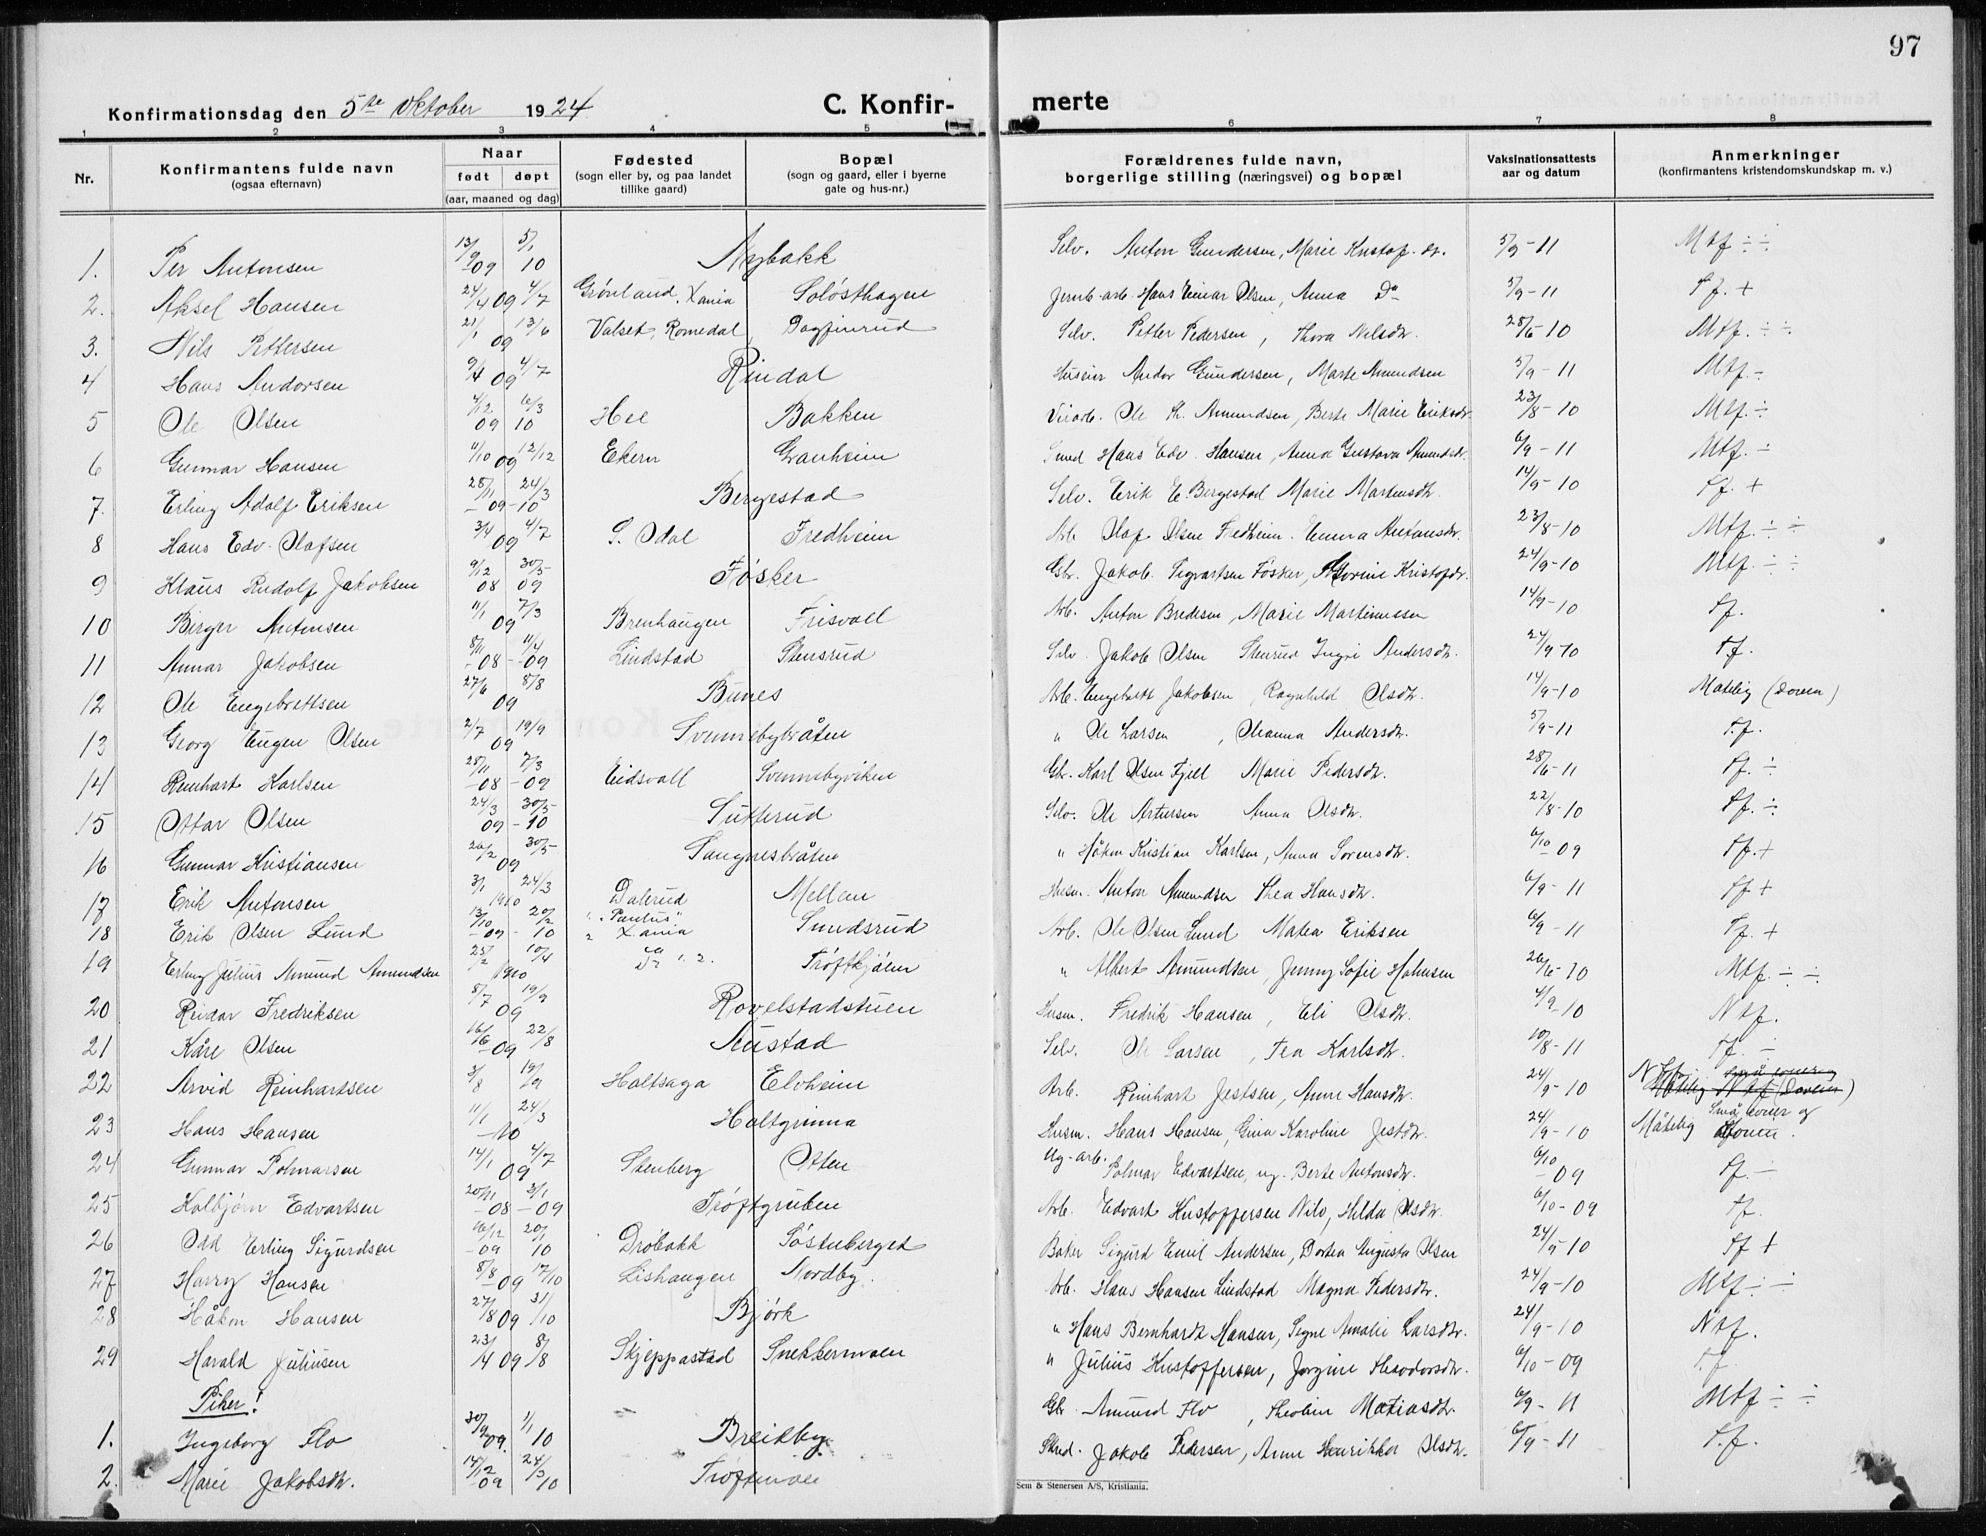 97
Konfirmationsdag den 5te Oktober 1924
C. Konfir- merte
1 2 3 4 5 6 7 8
Nr. Konfirmantens fulde navn (ogsaa efternavn) Naar født døpt (aar, maaned og dag) Fødested (sogn eller by, og paa landet tillike gaard) Bopæl (sogn og gaard, eller i byerne gate og hus-nr.) Forældrenes fulde navn, borgerlige stilling (næringsvei) og bopæl Vaksinationsattests aar og datum Anmerkninger (konfirmantens kristendomskundskap m. v.)
1. Per Antonsen 13/9 -09 5/1 10 Nybakk Selv. Anton Gundersen, Marie Kristof. dr. 5/9-11 Mtf ÷ ÷
2. Aksel Hansen 24/4 09 4/7 Grønland, Xania Soløsthagen Jernb-arb. Hans Einar Olsen, Anna Do 5/9-11 Tf. +
3. Nils Pettersen 21/1 09 13/6 Valset, Romedal Dagfinrud Selv. Petter Pedersen, Thora Nilsdtr. 28/6-10 Mtf. ÷ ÷
4 Hans Andorsen 9/4 09 4/7 Rindal Husier Andor Gundersen, Marte Amundsen 5/9-11 Mtf. ÷
5 Ole Olsen 4/12 09 6/3 10 Hee Bakken Veiarb. Ole Kr. Amundsen, Berte Marie Eriksdtr. 23/8-10 Mtf. ÷
6 Gunnar Hansen 11/10 09 12/12 Ekern Granheim Smed Hans Edv. Hansen, Anna Gustava Amundsdtr. 6/9-11 Mtf. ÷
7. Erling Adolf Eriksen 28/11 -09 24/3 -10 Bergestad Selv. Erik E. Bergestad Marie Martinsdtr. 14/9-10 Tf. +
8 Hans Edv. Olafsen 3/4 09 4/7 S. Odal Fredheim Arb. Olaf Olsen Fredheim. Emma Antonsdtr. 23/8-10 Mtf. ÷ ÷
9 Klaus Rudolf Jakobsen 9/12 08 30/5 09 Føsker Gbr. Jakob Sigvartsen Føsker, Hovine Kristofdtr. 24/9-10 Mtf. ÷ ÷
10 Birger Antonsen 11/1 09 7/3 Brenhaugen Frisvoll Arb. Anton Bredesen, Marie Martinussen 14/9-10 Tf.
11 Annar Jakobsen 8/11 -08 11/4 -09 Lindstad Stensrud Selv. Jakob Olsen Stensrud Ingri Andersdtr. 24/9 10 Tf.
12 Ole Engebrettsen 27/6 09 8/8 Bunes Arb. Engebrett Jakobsen, Ragnhild Olsdtr. 14/9-10 Mådelig (doven)
13 Georg Eugen Olsen 2/7 09 19/9 Svennebybråten " Ole Larsen, Oleanna Andersdtr. 5/9-11 T.f.
14 Reinhart Karlsen 25/11 -08 7/3 -09 Eidsvoll Svennebyviken Gbr. Karl Olsen Fjell Marie Pedersdtr. 28/6-11 Tf. ÷
15 Ottar Olsen 24/3 09 30/5 -10 Sutterud Selv. Ole Artursen Anna Olsdtr. 22/8-10 Tf. ÷
16 Gunnar Kristiansen 20/2 09 30/5 Sangnesbråten " Håkon Kristian Karlsen, Anna Sorensdtr. 6/10-09 Tf. +
17 Erik Antonsen 3/1 1910 24/3 Dalerud Mellem Husm. Anton Amundsen Thea Hansdtr. 6/9-11 Tf +
18 Erik Olsen Lund 13/10 -09 20/2 10 "Paulus" Xania Sundsrud Arb. Ole Olsen Lund Matea Eriksen 6/9-11 Tf. +
19 Erling Julius Amund Amundsen 25/2 1910 10/4 Do Trøftkjølen " Albert Amundsen, Jenny Sofie Holmsen 20/6-10 Mtf. ÷ ÷
20 Reidar Fredriksen 8/7 09 19/9 Rovelstadstuen Husm. Fredrik Hansen, Eli Olsdtr. 4/9-10 Ntf.
21 Kåre Olsen 16/6 -09 22/8 Austad Selv. Ole Larsen, Tea Karlsdtr. 10/8-11 Tf. ÷
22 Arvid Reinhartsen 3/8 19/9 Holtsaga Elvheim Arb. Reinhart Jestsen, Anne Hansdtr. 24/9-10 Mådelig Ntf (Doven)
23 Hans Hansen 11/1 -10 24/3 Holtgrinna Husm. Hans Hansen, Gina Karoline Jestdtr. 24/9-10 Mådelig Små evner og doven.
24 Gunnar Polmarsen 14/1 09 4/7 Stenberg Otten Ug-arb. Polmar Edvartsen, ug. Berte Antonsdtr. 6/10-09 Tf. ÷
25 Kolbjørn Edvartsen 20/11 -08 3/1 -09 Trøftgruben Arb. Edvart Kristoffersen Nilo, Hilda Olsdtr. 6/10-09 Tf.
26 Odd Erling Sigurdsen 16/12 -09 20/1 10 Drøbakk Søstuberget Baker Sigurd Emil Andersen, Dortea Augusta Olsen 24/9-10 Tf +
27 Harry Hansen 8/8 -09 17/10 Lishaugen Nordby. Arb. Hans Hansen Lindstad Magna Pedersdtr. 24/9-10 Mtf ÷ ÷
28 Håkon Hansen 27/8 09 31/10 Bjørk " Hans Bernhardt Hansen, Signe Amalie Larsdtr. 24/9-10 Ntf.
29 Harald Juliusen 23/4 09 8/8 Skjeppastad Snekkermoen " Julius Kristoffersen, Jørgine Theodorsdtr. 6/10-09 T.f.
Piker!
1. Ingeborg Flo 30/9 09. 1/1 10 Breidby Gbr. Amund Flo, Theoline Matiasdtr. 6/9-11 Mtf ÷ ÷
2. Marie Jakobsdtr. 14/12 -09 24/3 10 Trøftmoen Skred. Jakob Pedersen, Anne Henrikke Olsdtr. 6/9-11 T.f.
Sem & Stenersen A/S, Kristiania.